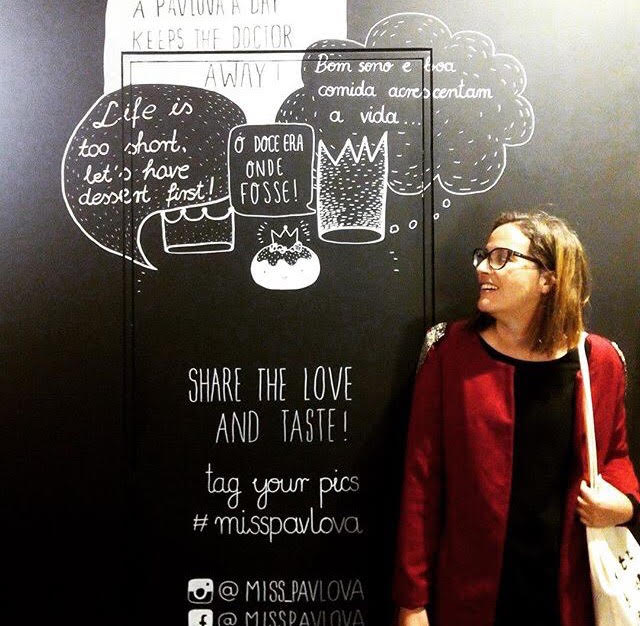 A PAVLOVA A DAY
KEEPS THE DOCTOR
AWAY!
Life is
too short,
let's have
dessert first!
Ó DOCE ERA
ONDE
FOSSE!
Bom sono e boa
comida acrescentam
a vida...
SHARE THE LOVE
AND TASTE!
tag your pics
#misspavlova
@ MISS_PAVLOVA
f @ MISSPAVLOVA